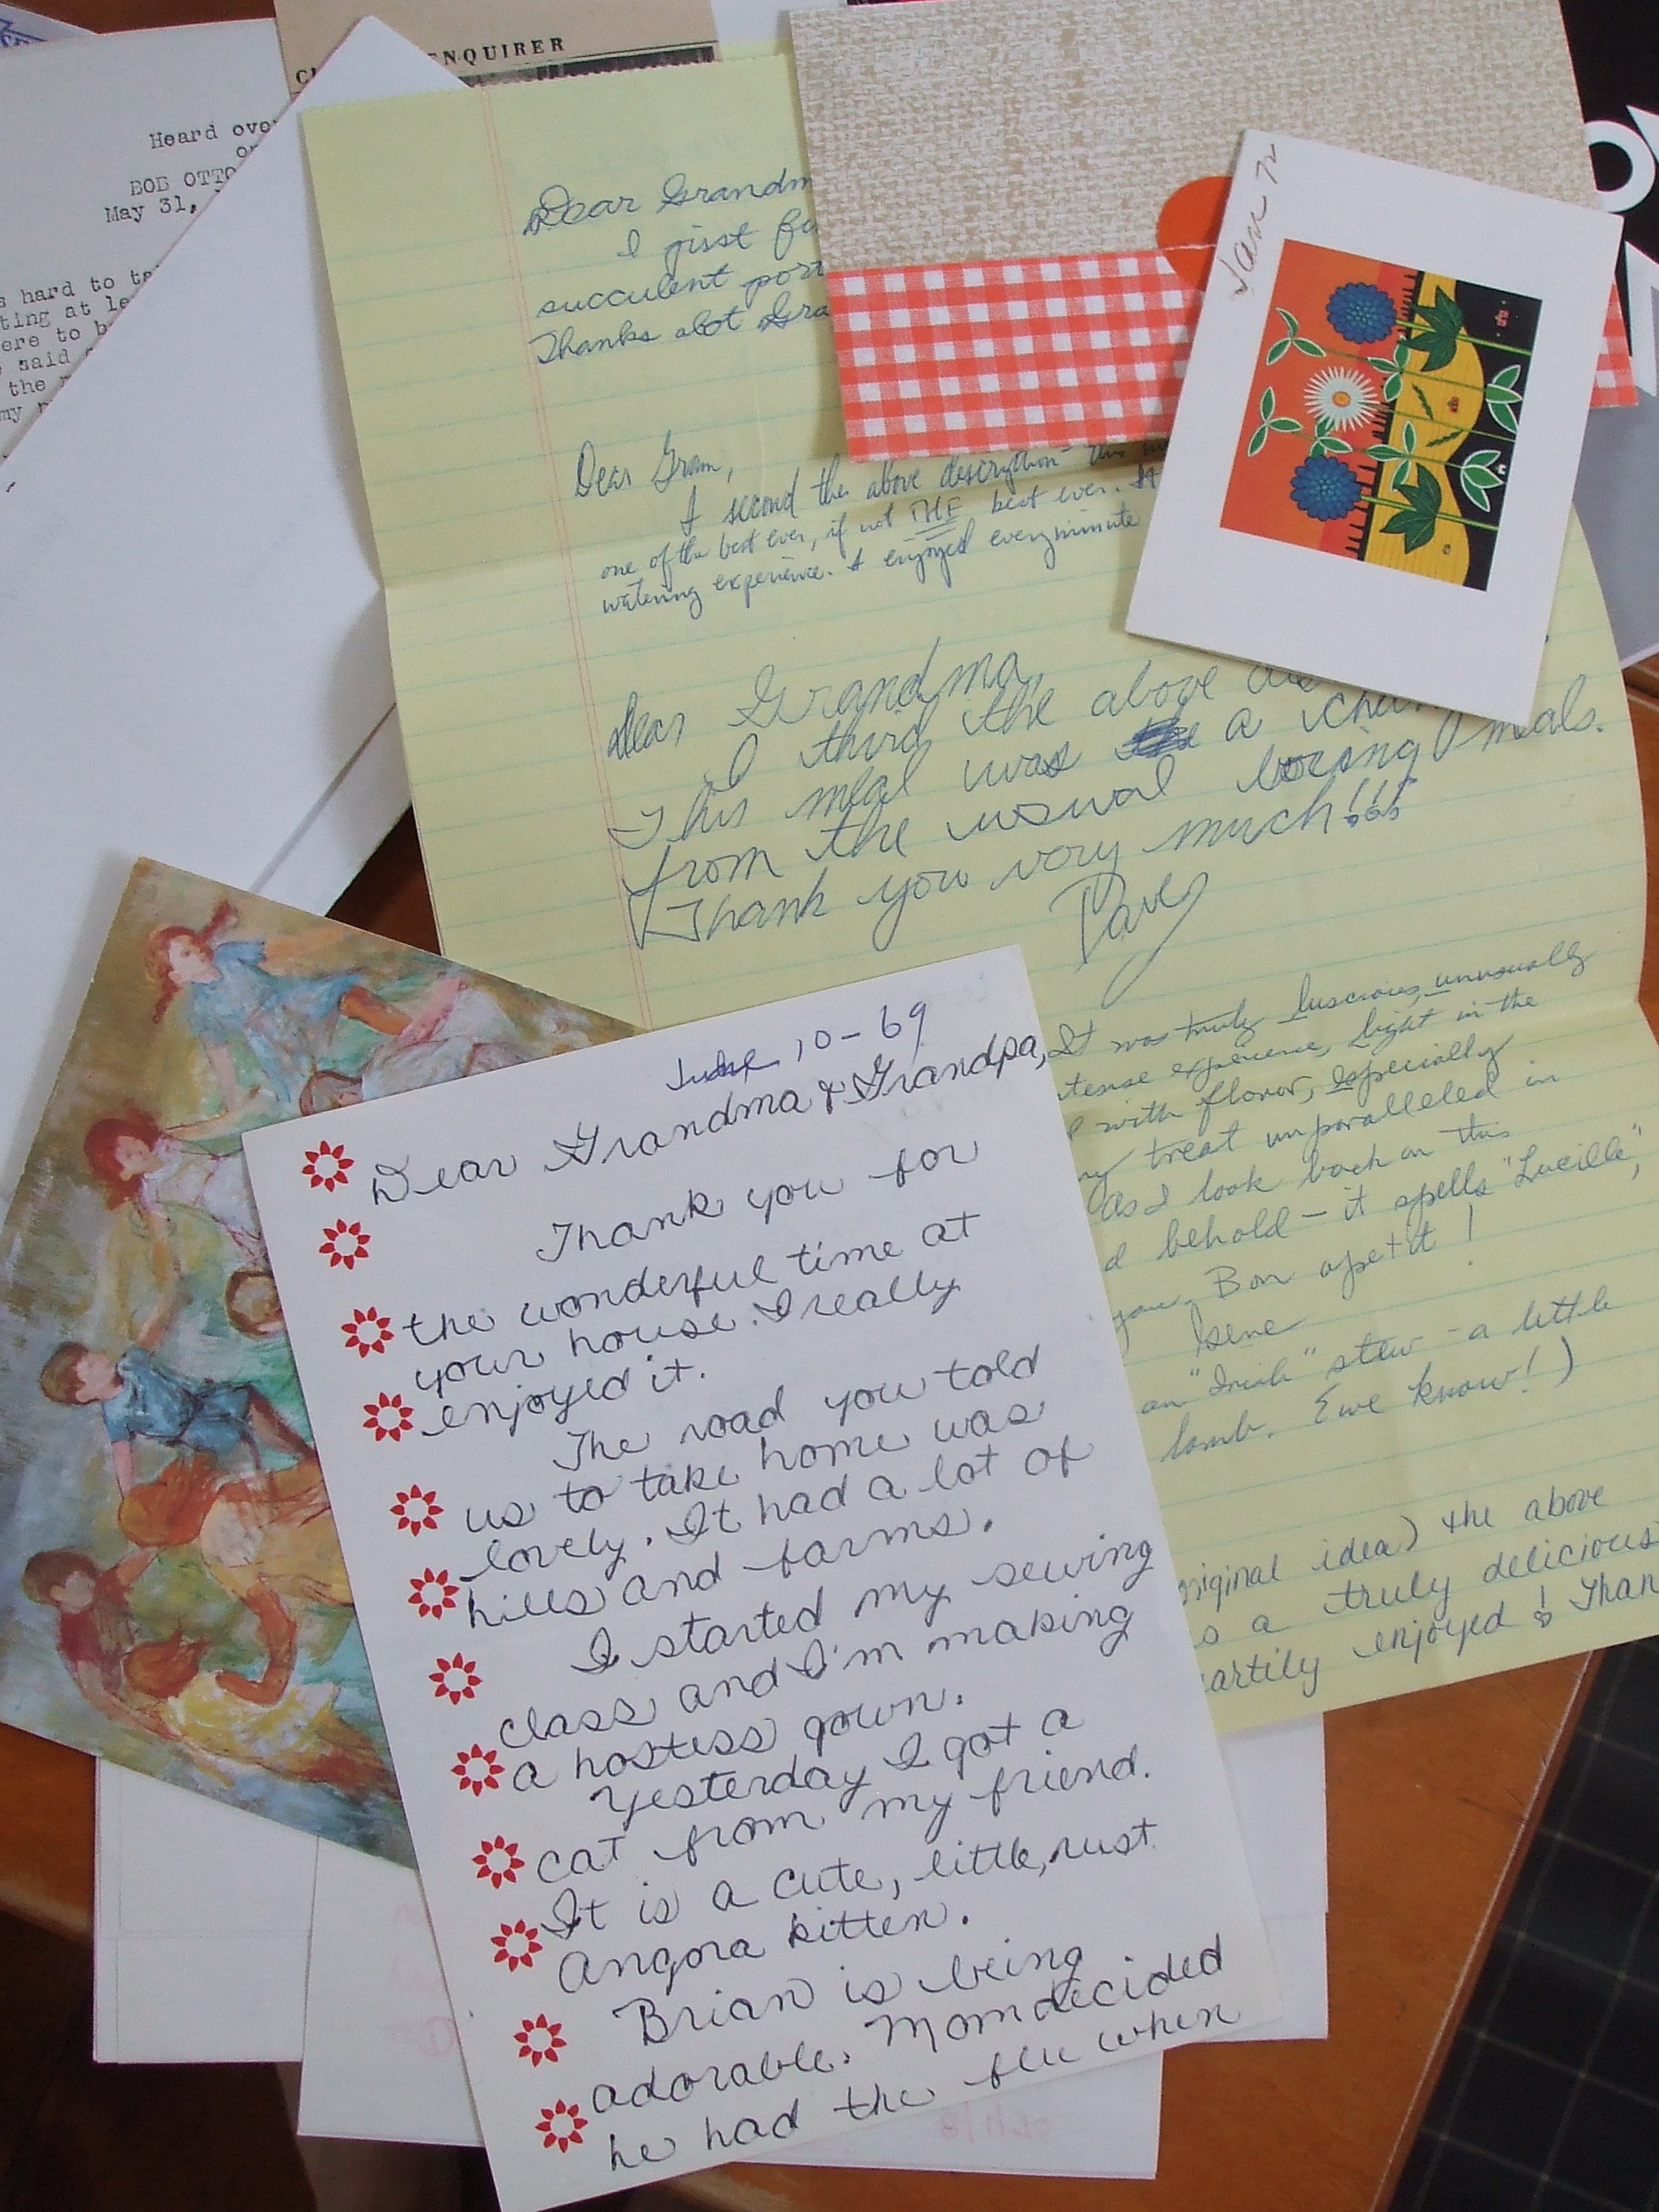 ENQUIRER
Heard
BOB OTTO
May 31,
s hard to
ting at
ere to
said
the
my
Jan 72
Dear
I jist
succulent
Thanks alot
Dear Gram,
I second the above description
one of the best ever, if not THE best ever. It
watering experience. I enjoyed every minute
Dear Grandma,
I third the above
This meal was a
from the usual boring meals.
Thank you very much!!!
Dave
It was truly luscious, unusually
experience, light in the
with flavor, especially
treat unparalleled in
As I look back on this
behold - it spells "Lucille",
you. Bon apetit!
Isene
an "Irish" stew - a little
lamb. Ewe know!)
original idea) the above
a truly delicious
enjoyed!
June 10-69
Dear Grandma & Grandpa,
Thank you for
the wonderful time at
your house. I really
enjoyed it.
The road you told
us to take home was
lovely. It had a lot of
hills and farms.
I started my sewing
class and I'm making
a hostess gown.
Yesterday I got a
cat from my friend.
It is a cute, little, rust
Angora kitten.
Brian is being
adorable. Mom decided
he had the flu when